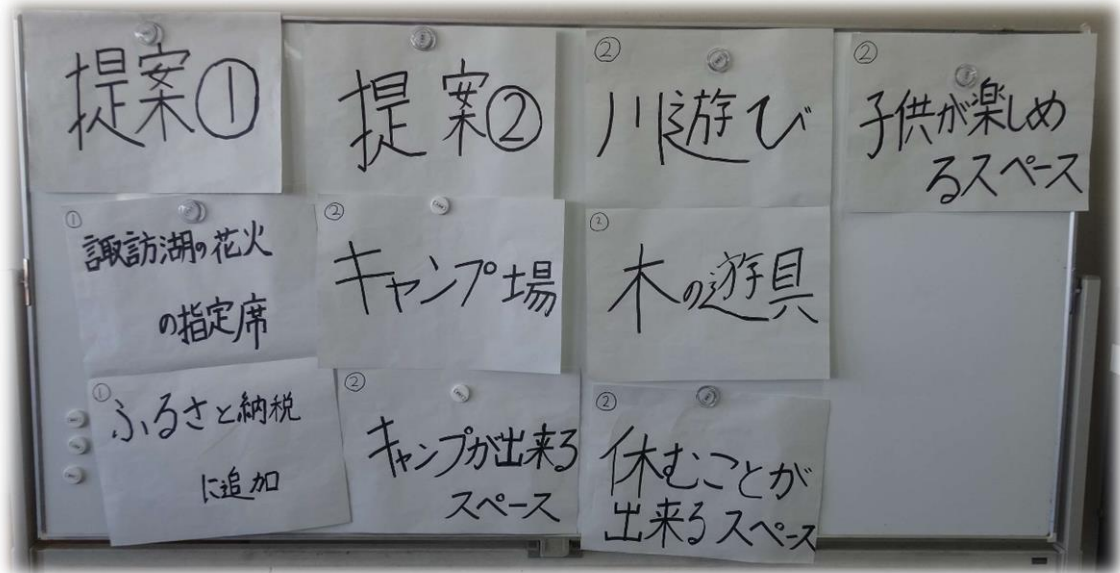 提案①
提案②
②
川遊び
②
子供が楽しめ
るスペース
①
諏訪湖の花火
の指定席
②
キャンプ場
②
木の遊具
①
ふるさと納税
に追加
②
キャンプが出来る
スペース
②
休むことが
出来るスペース